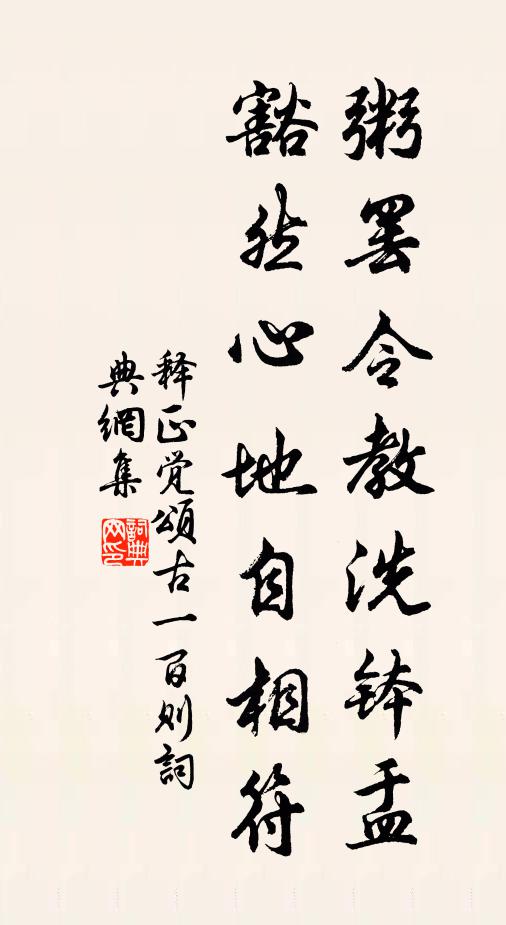 粥罢令教洗钵盂
豁然心地自相符
释正觉頌古一百则詞
典網集
詞典网印